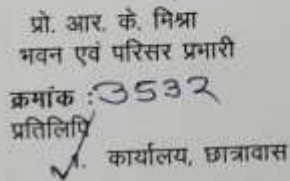 प्रो. आर. के. मिश्रा
भवन एवं परिसर प्रभारी
क्रमांक :3532
प्रतिलिपि
1. कार्यालय, छात्रावास